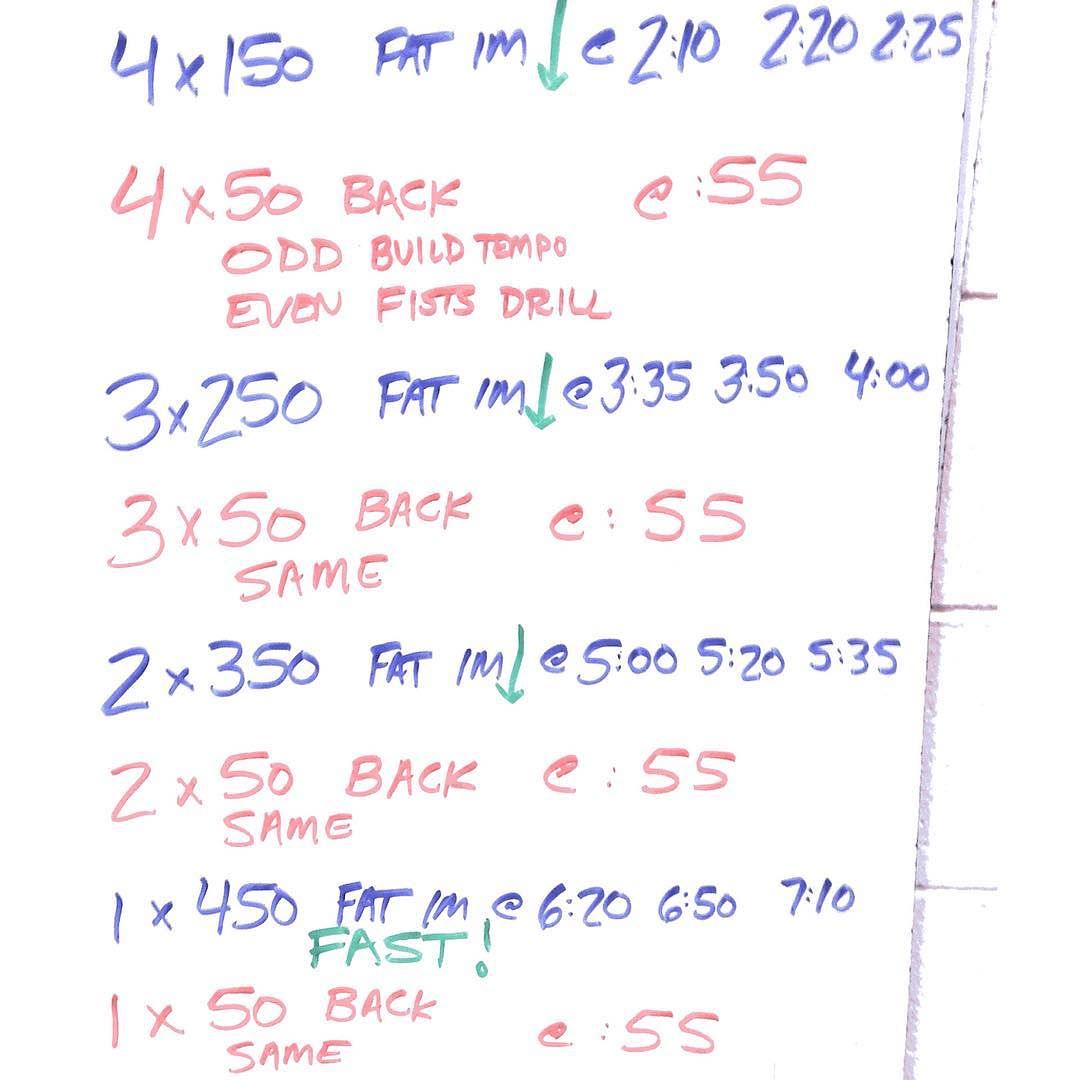 4 x 150 FAT IM ↓ @ 2:10 2:20 2:25
4 x 50 BACK @ :55
ODD BUILD TEMPO
EVEN FISTS DRILL
3 x 250 FAT IM ↓ @ 3:35 3:50 4:00
3 x 50 BACK @ :55
SAME
2 x 350 FAT IM ↓ @ 5:00 5:20 5:35
2 x 50 BACK @ :55
SAME
1 x 450 FAT IM @ 6:20 6:50 7:10
FAST!
1 x 50 BACK @ :55
SAME